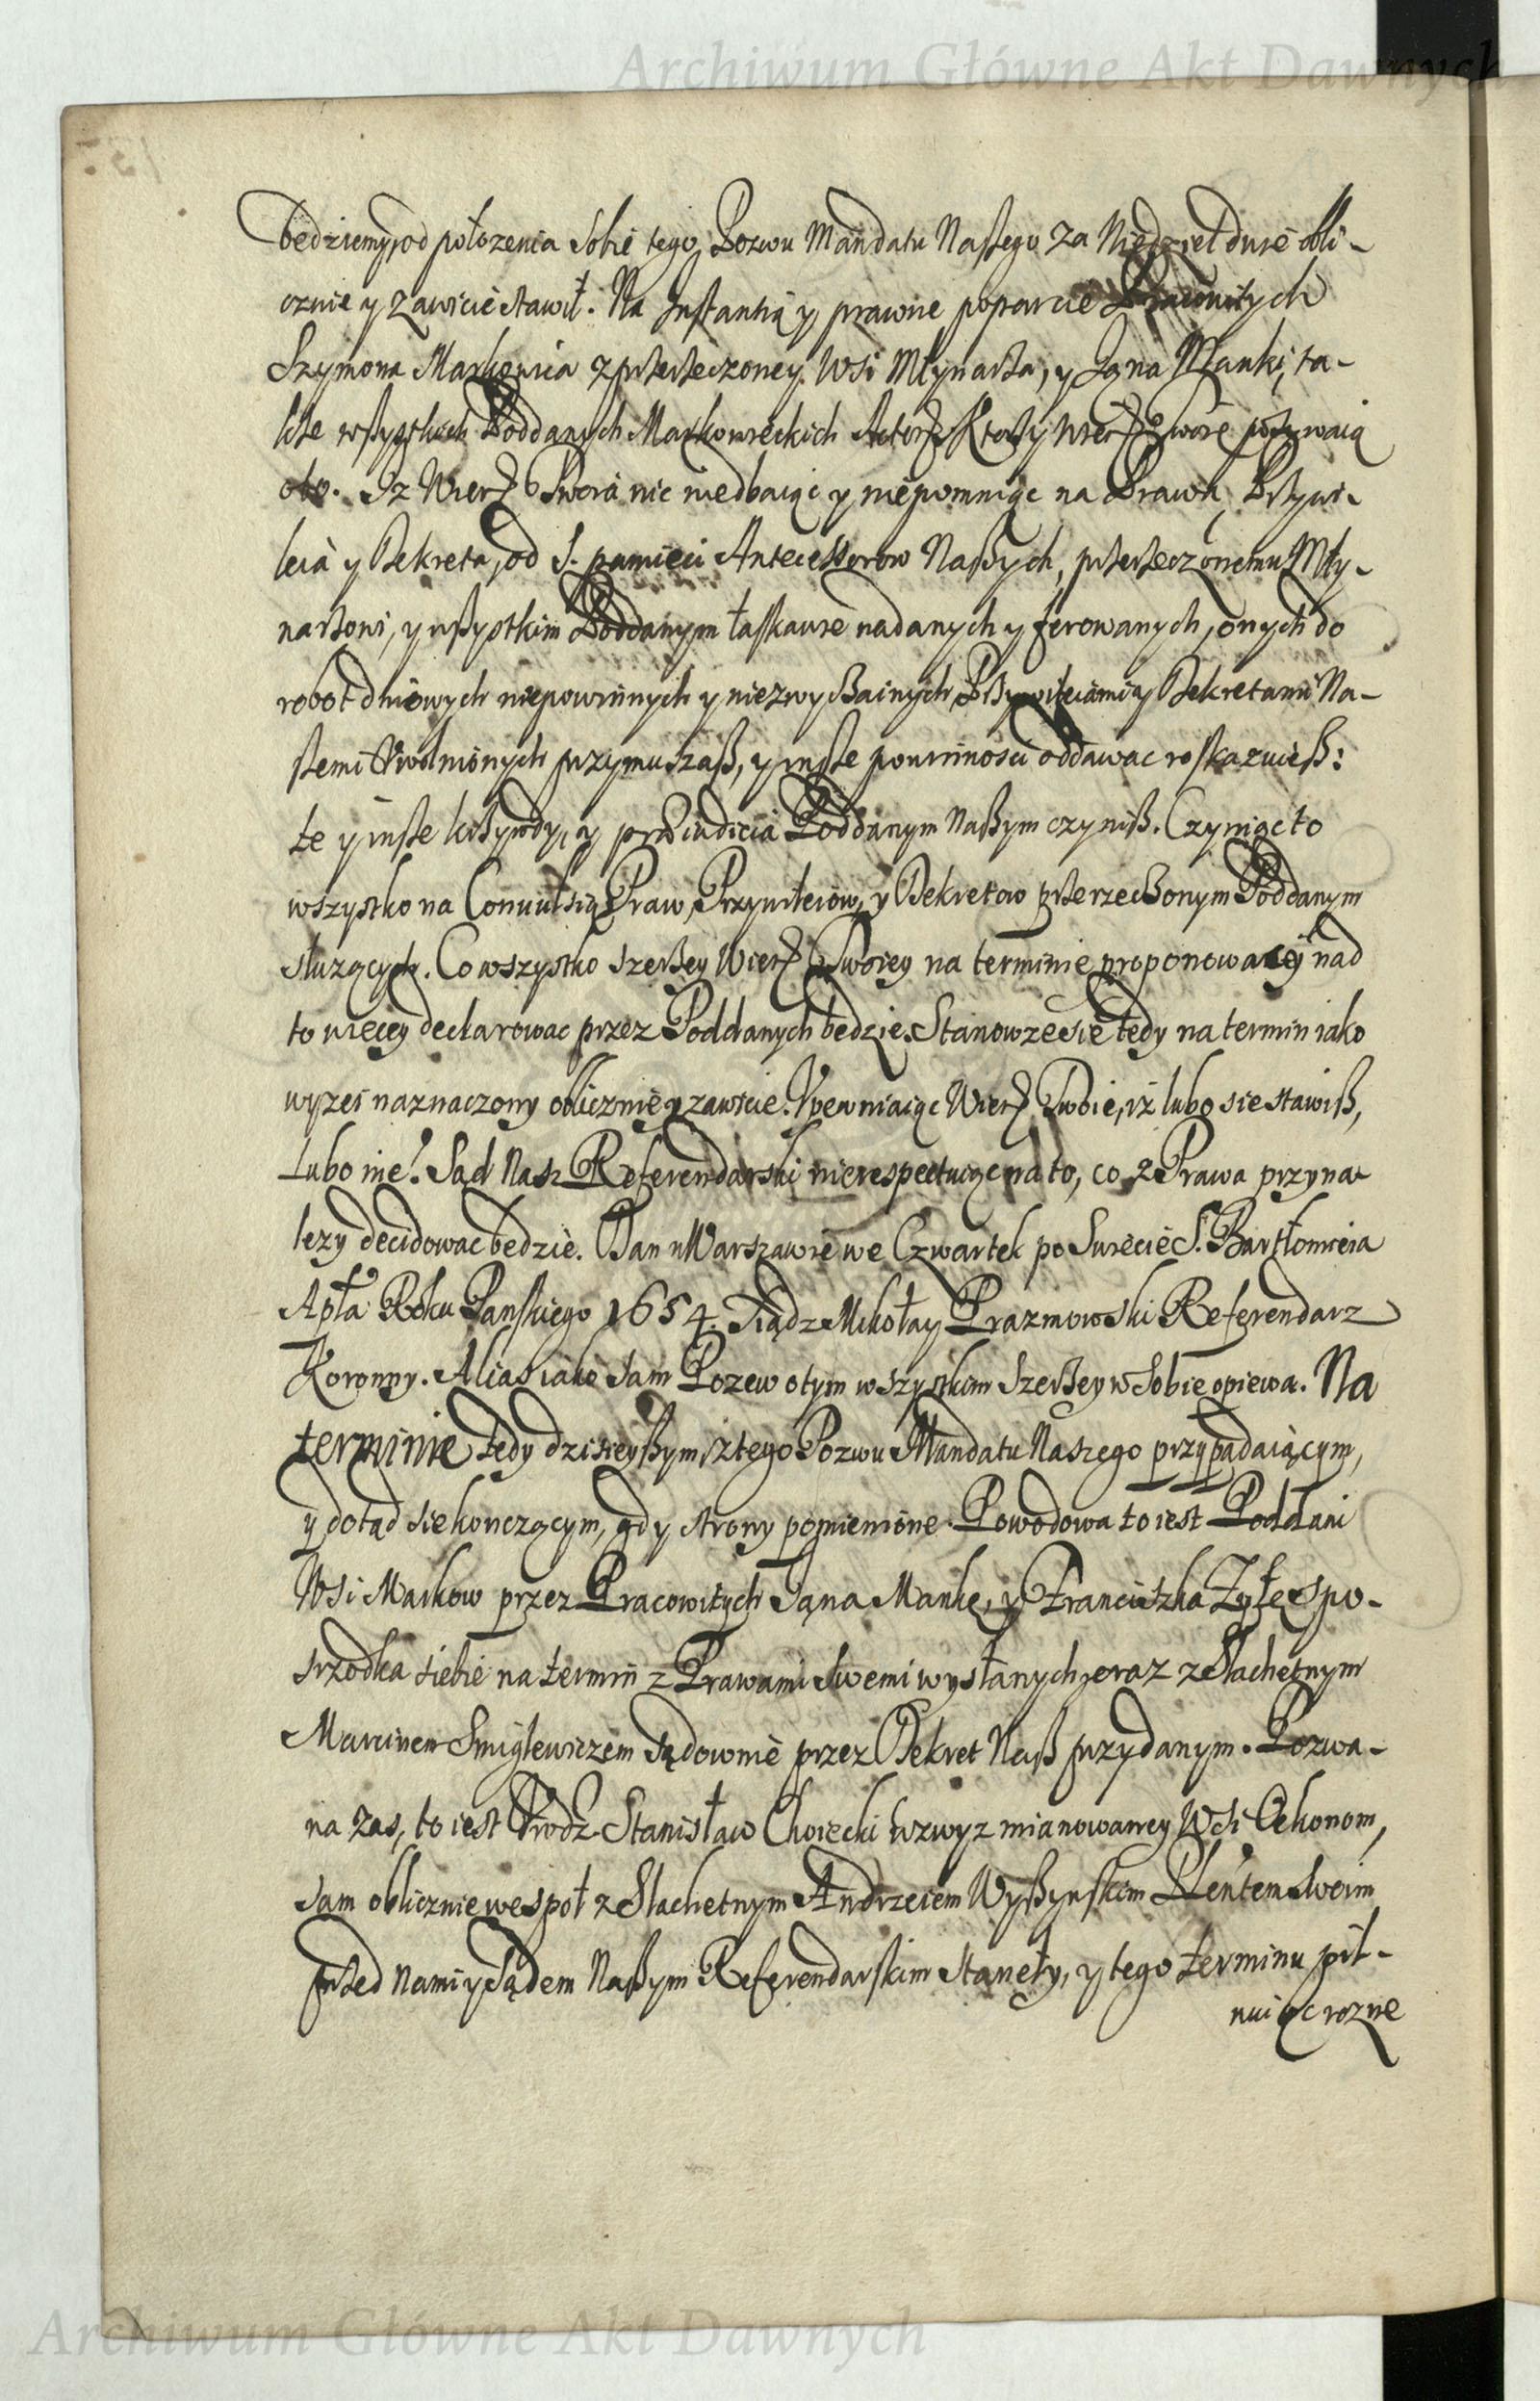 Archiwum Główne Akt Dawnych
będziemy, od położenia sobie tego Pozwu Mandatu Naßego za Niedziel dwie obli-
cznie y zawicie stawił. Na Instantią y prawne poparcie Pracowitych
Szymona Markowica z przerzeczoney Wsi Młynarza, y Jana Manki, ta-
kże wßystkich Poddanych Markowieckich Actorz. Ktorzy Wierz. Twoię pozywaią
oto. Iz Wierz. Twoia nic niedbaiąc y niepomniąc na Prawa, Przywi-
leia y Dekreta, od S. pamięci Antecessorow Naßych, przerzeczonemu Mły-
narzowi, y wßystkim Poddanym łaskawie nadanych y ferowanych, onych do
robot dniowych niepowinnych y niezwyczainych Przywileiami y Dekretami Na-
ßemi Uwolnionych przymuszaß, y inße powinnosci oddawac roskazuieß:
te y inße krzywdy, y praeiudicia Poddanym Naßym czyniß. Czyniąc to
wszystko na Convulsią Praw, Przywileiow, y Dekretow przerzeczonym Poddanym
służących. Co wszystko szerzey Wierz. Twoiey na terminie proponowacy nad
to więcey declarowac przez Poddanych będzie. Stanowze się tedy na termin iako
wyzei naznaczony oblicznie y zawicie. Upewniaiąc Wierz. Twoię, iż lubo sie stawiß,
lubo nie. Sąd Nasz Referendarski nierespectuiąc na to, co z Prawa przyna-
lezy decidowac będzie. Dan w Warszawie we Czwartek po Swiecie S. Bartłomieia
Apła Roku Panskiego 1654. Xiądz Mikołay Prazmowski Referendarz
Koronny. Alias iako sam Pozew o tym wszystkim szerzey w sobie opiewa. Na
terminie tedy dzisieyßym, z tego Pozwu Mandatu Naszego przypadaiącym,
y dotąd sie konczącym, gdy strony pomienione. Powodowa to iest Poddani
Wsi Markow przez Pracowitych Jana Mankę, y Franciszka Zyłę spo-
srzodka siebie na termin z Prawami swemi wysłanych, oraz z Slachetnym
Marcinem Smiglewiczem sądownie przez Dekret Naß przydanym. Pozwa-
na zas, to iest Urodz. Stanisław Choiecki wzwyz mianowaney Wsi Oekonom,
sam oblicznie wespoł z Slachetnym Andrzeiem Wyßynskim Plentem swoim
przed Nami y Sądem Naßym Referendarskim stanęły, y tego terminu pil-
nuiąc rozne
Archiwum Główne Akt Dawnych